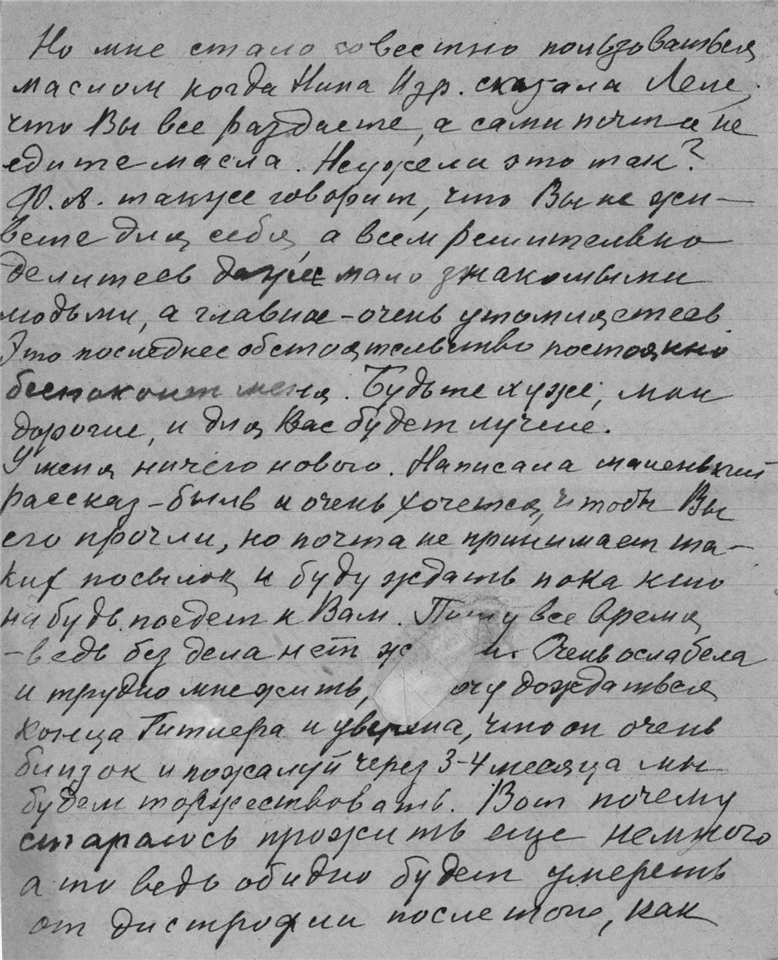 Но мне стало совестно пользоваться
маслом когда Нина Изр. сказала Леле,
что Вы все раздаете, а сами почти не
едите масла. Неужели это так?
Ю.А. также говорит, что Вы не жи-
вете для себя, а всем решительно
делитесь даже мало знакомыми
людьми, а главное - очень утомляетесь.
Это последнее обстоятельство постоянно
беспокоит меня. Будьте хуже, мои
дорогие, и для Вас будет лучше.
У меня ничего нового. Написала маленький
рассказ - быль и очень хочется, чтобы Вы
его прочли, но почта не принимает та-
ких посылок и буду ждать пока кто
нибудь поедет к Вам. Пишу все время
- ведь без дела нет ж и. Очень ослабела
и трудно мне жить, очу дождаться
конца Гитлера и уверена, что он очень
близок и пожалуй через 3-4 месяца мы
будем торжествовать. Вот почему
стараюсь прожить еще немного
а то ведь обидно будет умереть
от дистрофии после того, как